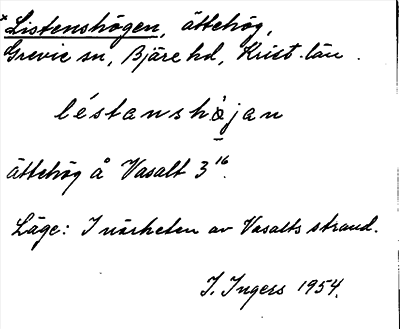 *Listenshögen, ättehög,
Grevie sn, Bjäre hd, Krist. län.
léstanshàjan
ättehög å Vasalt 3¹⁶.
Läge: I närheten av Vasalts strand.
I. Ingers 1954.